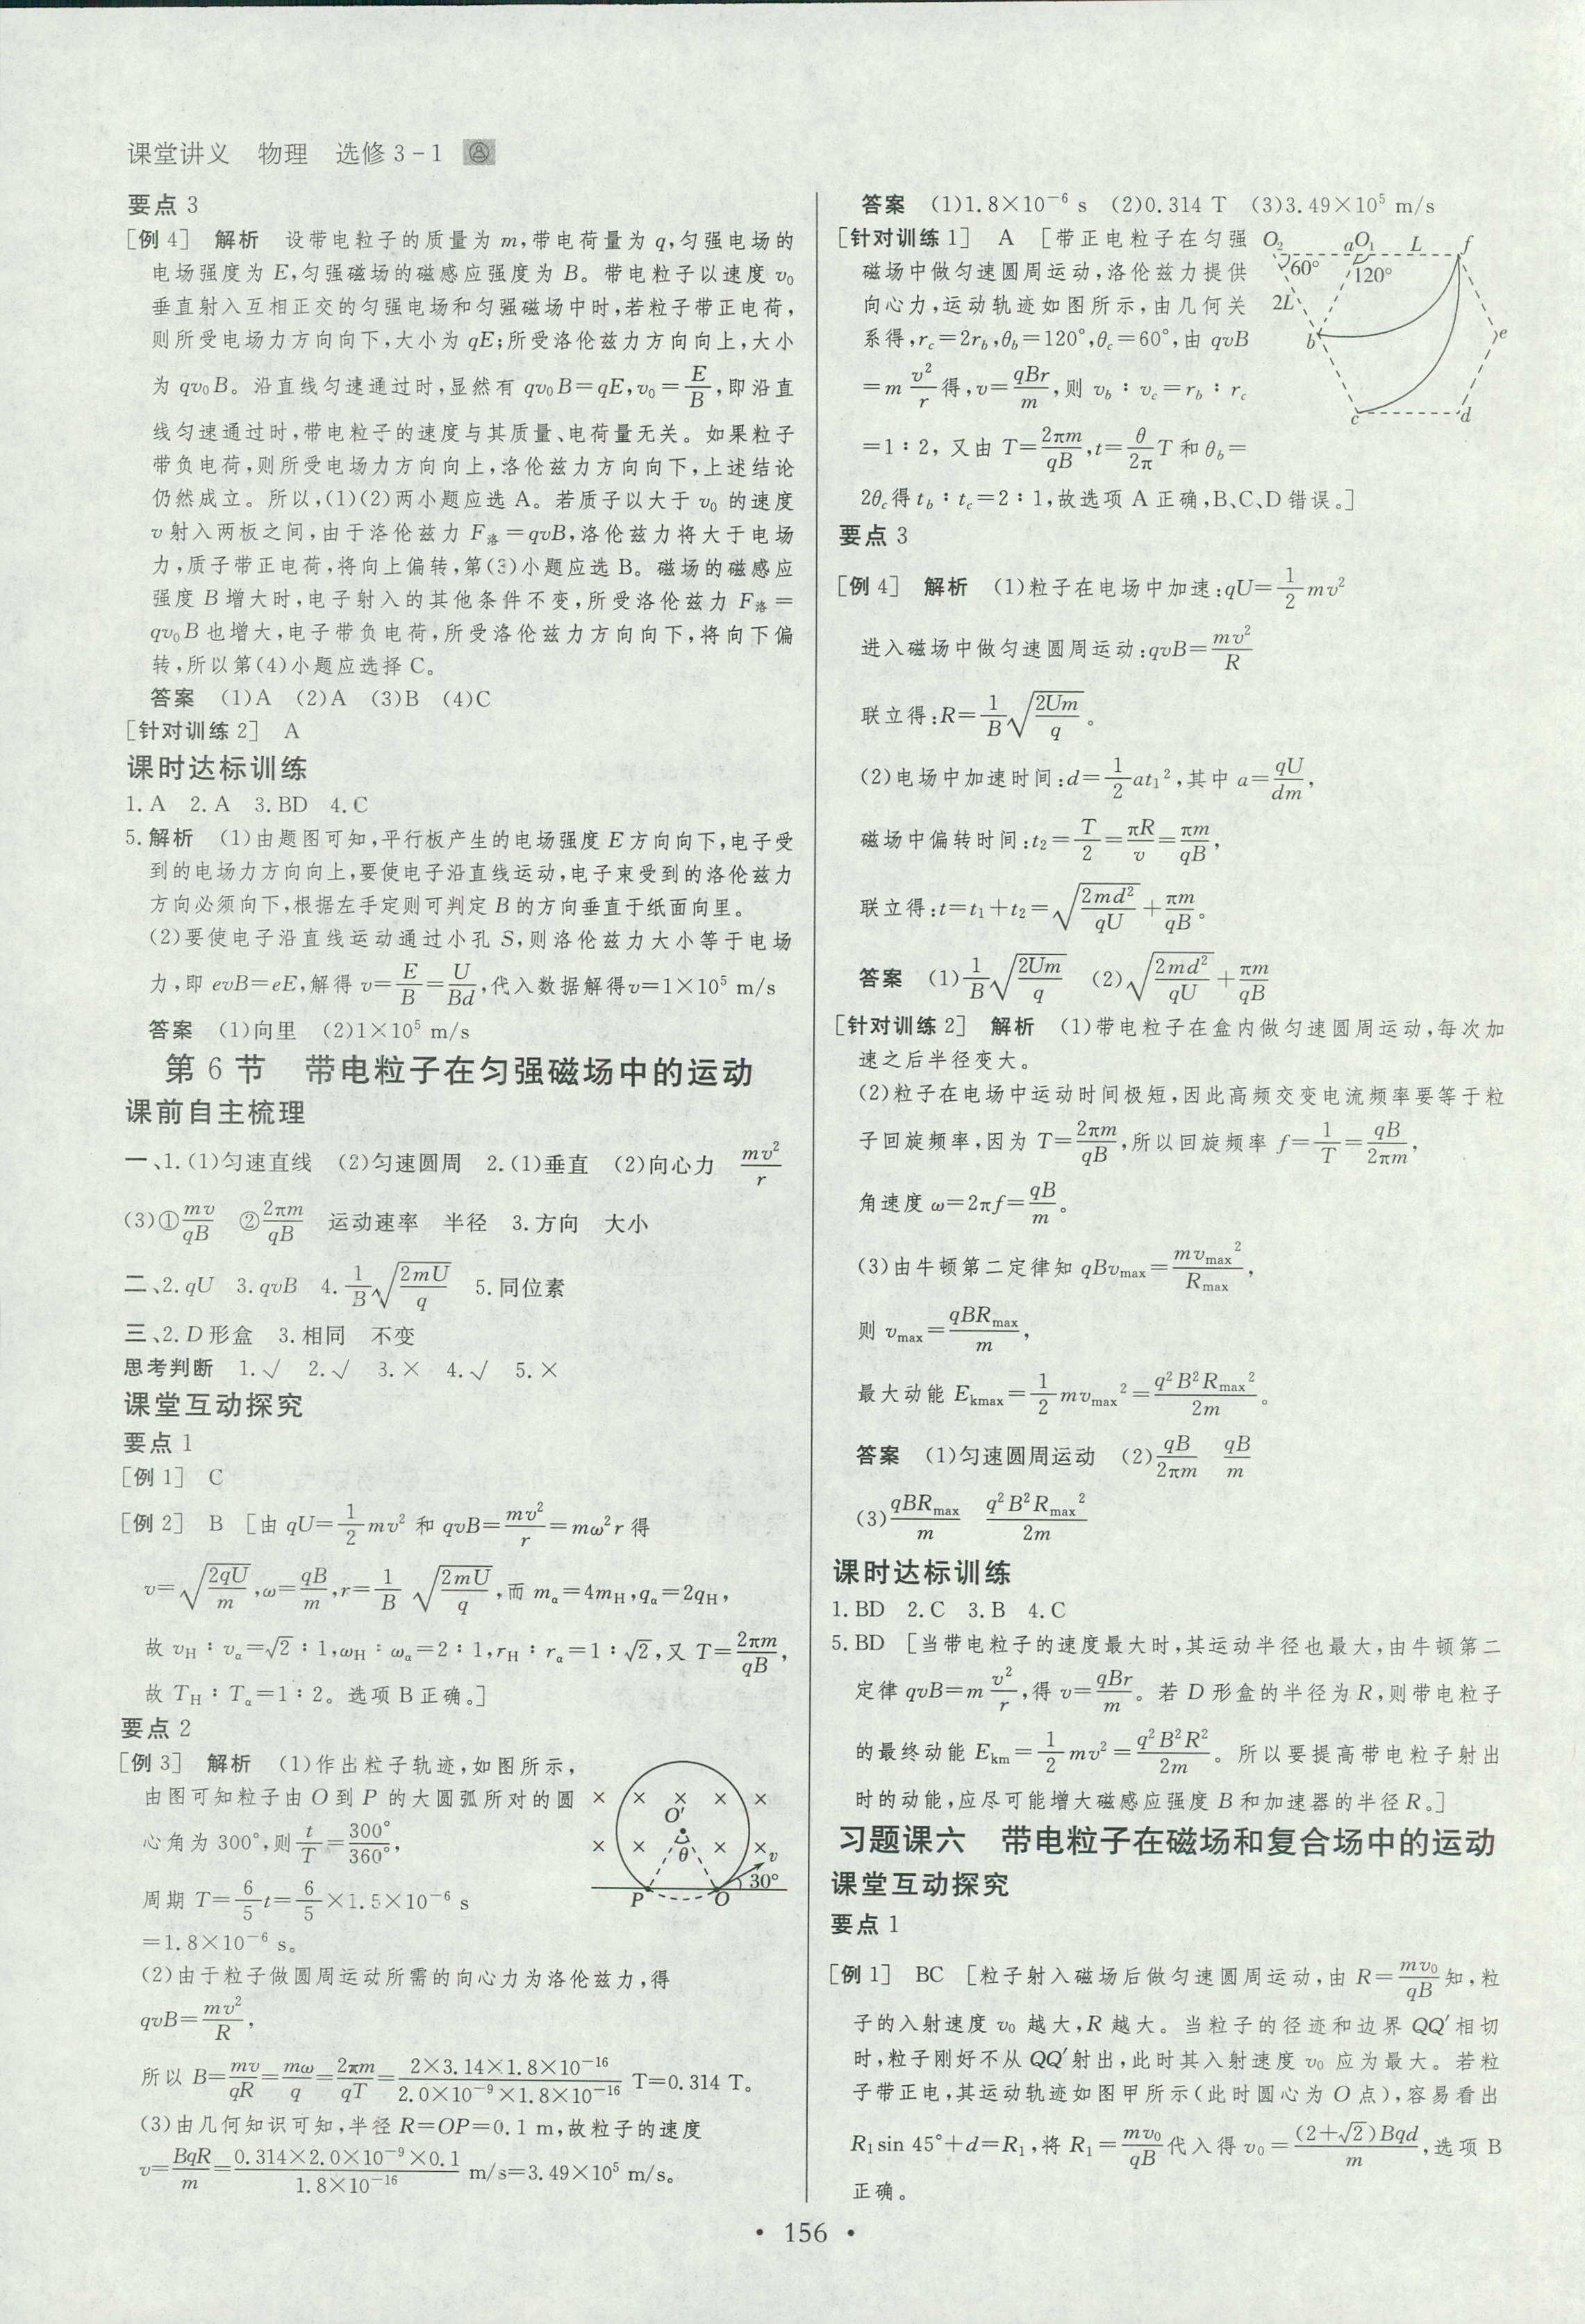 课堂讲义 物理 选修3-1
要点3
[例4] 解析 设带电粒子的质量为m,带电荷量为q,匀强电场的
电场强度为E,匀强磁场的磁感应强度为B。带电粒子以速度v₀
垂直射入互相正交的匀强电场和匀强磁场中时,若粒子带正电荷,
则所受电场力方向向下,大小为qE;所受洛伦兹力方向向上,大小
为qv₀B。沿直线匀速通过时,显然有qv₀B=qE,v₀=E/B,即沿直
线匀速通过时,带电粒子的速度与其质量、电荷量无关。如果粒子
带负电荷,则所受电场力方向向上,洛伦兹力方向向下,上述结论
仍然成立。所以,(1)(2)两小题应选A。若质子以大于v₀的速度
v射入两板之间,由于洛伦兹力F洛=qvB,洛伦兹力将大于电场
力,质子带正电荷,将向上偏转,第(3)小题应选B。磁场的磁感应
强度B增大时,电子射入的其他条件不变,所受洛伦兹力F洛=
qv₀B也增大,电子带负电荷,所受洛伦兹力方向向下,将向下偏
转,所以第(4)小题应选择C。
答案 (1)A (2)A (3)B (4)C
[针对训练2] A
课时达标训练
1.A 2.A 3.BD 4.C
5.解析 (1)由题图可知,平行板产生的电场强度E方向向下,电子受
到的电场力方向向上,要使电子沿直线运动,电子束受到的洛伦兹力
方向必须向下,根据左手定则可判定B的方向垂直于纸面向里。
(2)要使电子沿直线运动通过小孔S,则洛伦兹力大小等于电场
力,即evB=eE,解得v=E/B=U/Bd,代入数据解得v=1×10⁵ m/s
答案 (1)向里 (2)1×10⁵ m/s
第6节 带电粒子在匀强磁场中的运动
课前自主梳理
一、1.(1)匀速直线 (2)匀速圆周 2.(1)垂直 (2)向心力 mv²/r
(3)①mv/qB ②2πm/qB 运动速率 半径 3.方向 大小
二、2.qU 3.qvB 4.1/B√(2mU/q) 5.同位素
三、2.D形盒 3.相同 不变
思考判断 1.√ 2.√ 3.× 4.√ 5.×
课堂互动探究
要点1
[例1] C
[例2] B [由qU=1/2mv²和qvB=mv²/r=mω²r得
v=√(2qU/m),ω=qB/m,r=1/B √(2mU/q),而mα=4mH,qα=2qH,
故vH∶vα=√2∶1,ωH∶ωα=2∶1,rH∶rα=1∶√2,又T=2πm/qB,
故TH∶Tα=1∶2。选项B正确。]
要点2
[例3] 解析 (1)作出粒子轨迹,如图所示,
由图可知粒子由O到P的大圆弧所对的圆
心角为300°,则t/T=300°/360°,
周期T=6/5t=6/5×1.5×10⁻⁶ s
=1.8×10⁻⁶ s。
× × × × ×
O′
× × × ×
θ
v
30°
P O
(2)由于粒子做圆周运动所需的向心力为洛伦兹力,得
qvB=mv²/R,
所以B=mv/qR=mω/q=2πm/qT=2×3.14×1.8×10⁻¹⁶/2.0×10⁻⁹×1.8×10⁻¹⁶ T=0.314 T。
(3)由几何知识可知,半径R=OP=0.1 m,故粒子的速度
v=BqR/m=0.314×2.0×10⁻⁹×0.1/1.8×10⁻¹⁶ m/s=3.49×10⁵ m/s。
答案 (1)1.8×10⁻⁶ s (2)0.314 T (3)3.49×10⁵ m/s
[针对训练1] A [带正电粒子在匀强
磁场中做匀速圆周运动,洛伦兹力提供
向心力,运动轨迹如图所示,由几何关
系得,rc=2rb,θb=120°,θc=60°,由qvB
=mv²/r得,v=qBr/m,则vb∶vc=rb∶rc
=1∶2,又由T=2πm/qB,t=θ/2πT和θb=
2θc得tb∶tc=2∶1,故选项A正确,B、C、D错误。]
O₂ aO₁ L f
60° 120°
2L
b e
c d
要点3
[例4] 解析 (1)粒子在电场中加速:qU=1/2mv²
进入磁场中做匀速圆周运动:qvB=mv²/R
联立得:R=1/B√(2Um/q)。
(2)电场中加速时间:d=1/2at₁²,其中a=qU/dm,
磁场中偏转时间:t₂=T/2=πR/v=πm/qB,
联立得:t=t₁+t₂=√(2md²/qU)+πm/qB。
答案 (1)1/B√(2Um/q) (2)√(2md²/qU)+πm/qB
[针对训练2] 解析 (1)带电粒子在盒内做匀速圆周运动,每次加
速之后半径变大。
(2)粒子在电场中运动时间极短,因此高频交变电流频率要等于粒
子回旋频率,因为T=2πm/qB,所以回旋频率f=1/T=qB/2πm,
角速度ω=2πf=qB/m。
(3)由牛顿第二定律知qBvmax=mvmax²/Rmax,
则vmax=qBRmax/m,
最大动能Ekmax=1/2mvmax²=q²B²Rmax²/2m。
答案 (1)匀速圆周运动 (2)qB/2πm qB/m
(3)qBRmax/m q²B²Rmax²/2m
课时达标训练
1.BD 2.C 3.B 4.C
5.BD [当带电粒子的速度最大时,其运动半径也最大,由牛顿第二
定律qvB=mv²/r,得v=qBr/m。若D形盒的半径为R,则带电粒子
的最终动能Ekm=1/2mv²=q²B²R²/2m。所以要提高带电粒子射出
时的动能,应尽可能增大磁感应强度B和加速器的半径R。]
习题课六 带电粒子在磁场和复合场中的运动
课堂互动探究
要点1
[例1] BC [粒子射入磁场后做匀速圆周运动,由R=mv₀/qB知,粒
子的入射速度v₀越大,R越大。当粒子的径迹和边界QQ′相切
时,粒子刚好不从QQ′射出,此时其入射速度v₀应为最大。若粒
子带正电,其运动轨迹如图甲所示(此时圆心为O点),容易看出
R₁sin 45°+d=R₁,将R₁=mv₀/qB代入得v₀=(2+√2)Bqd/m,选项B
正确。
• 156 •